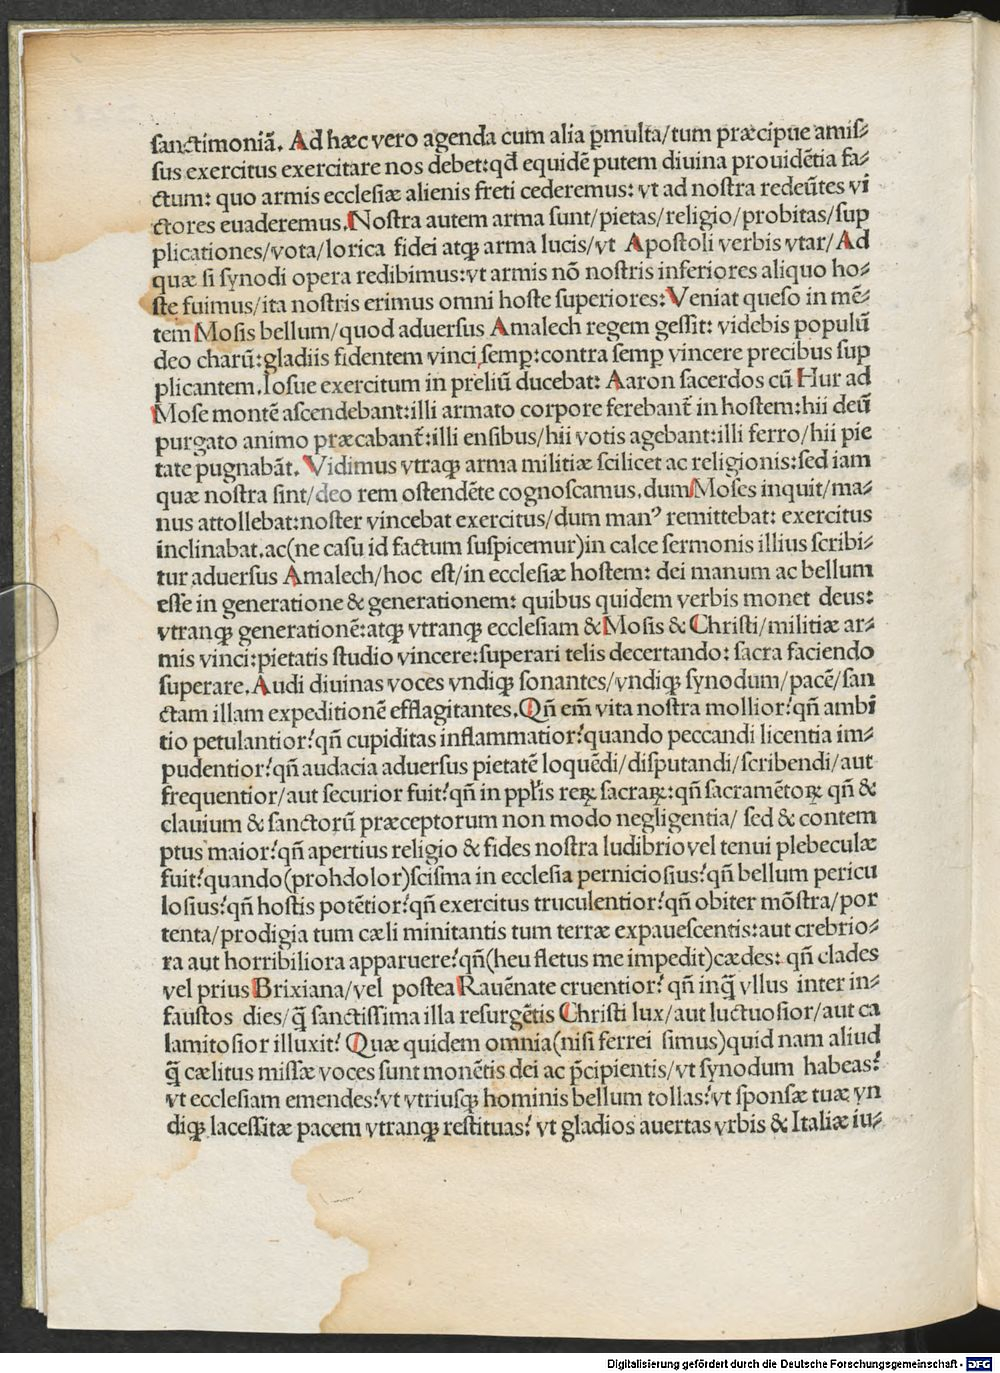 sanctimoniā. Ad hæc vero agenda cum alia ꝑmulta/tum præcipue amis⸗
sus exercitus exercitare nos debet:qđ equidē putem diuina prouidētia fa⸗
ctum: quo armis ecclesiæ alienis freti cederemus: vt ad nostra redeūtes vi
ctores euaderemus.Nostra autem arma sunt/pietas/religio/probitas/sup
plicationes/vota/lorica fidei atqꝫ arma lucis/vt Apostoli verbis vtar/Ad
quæ si synodi opera redibimus:vt armis nō nostris inferiores aliquo ho⸗
ste fuimus/ita nostris erimus omni hoste superiores:Veniat queso in mē⸗
tem Mosis bellum/quod aduersus Amalech regem gessit: videbis populū
deo charū:gladiis fidentem vinci semꝑ:contra semꝑ vincere precibus sup
plicantem.Iosue exercitum in preliū ducebat: Aaron sacerdos cū Hur ad
Mose montē ascendebant:illi armato corpore ferebant̄ in hostem:hii deū
purgato animo præcabant̄:illi ensibus/hii votis agebant:illi ferro/hii pie
tate pugnabāt. Vidimus vtraqꝫ arma militiæ scilicet ac religionis:sed iam
quæ nostra sint/deo rem ostendēte cognoscamus.dum Moses inquit/ma⸗
nus attollebat:noster vincebat exercitus/dum manꝰ remittebat: exercitus
inclinabat.ac(ne casu id factum suspicemur)in calce sermonis illius scribi⸗
tur aduersus Amalech/hoc est/in ecclesiæ hostem: dei manum ac bellum
esse in generatione & generationem: quibus quidem verbis monet deus:
vtranqꝫ generationē:atqꝫ vtranqꝫ ecclesiam & Mosis & Christi/militiæ ar⸗
mis vinci:pietatis studio vincere:superari telis decertando: sacra faciendo
superare.Audi diuinas voces vndiqꝫ sonantes/vndiqꝫ synodum/pacē/san
ctam illam expeditionē efflagitantes.Qñ em̄ vita nostra mollior?qñ ambi
tio petulantior?qñ cupiditas inflammatior?quando peccandi licentia im⸗
pudentior?qñ audacia aduersus pietatē loquēdi/disputandi/scribendi/aut
frequentior/aut securior fuit?qñ in ppl̄is reꝝ sacraꝝ:qñ sacramētoꝝ qñ &
clauium & sanctorū præceptorum non modo negligentia/ sed & contem
ptus maior?qñ apertius religio & fides nostra ludibrio vel tenui plebeculæ
fuit?quando(prohdolor)scisma in ecclesia perniciosius?qñ bellum pericu
losius?qñ hostis potētior?qñ exercitus truculentior?qñ obiter mōstra/por
tenta/prodigia tum cæli minitantis tum terræ expauescentis:aut crebrio⸗
ra aut horribiliora apparuere?qñ(heu fletus me impedit)cædes: qñ clades
vel prius Brixiana/vel postea Rauēnate cruentior? qñ inq̄ vllus inter in⸗
faustos dies/q̄ sanctissima illa resurgētis Christi lux/aut luctuosior/aut ca
lamitosior illuxit? Quæ quidem omnia(nisi ferrei simus)quid nam aliud
q̄ cælitus missæ voces sunt monētis dei ac p̄cipientis/vt synodum habeas?
vt ecclesiam emendes?vt vtriusqꝫ hominis bellum tollas?vt sponsæ tuæ vn
diqꝫ lacessitæ pacem vtranqꝫ restituas? vt gladios auertas vrbis & Italiæ iu⸗
Digitalisierung gefördert durch die Deutsche Forschungsgemeinschaft - DFG